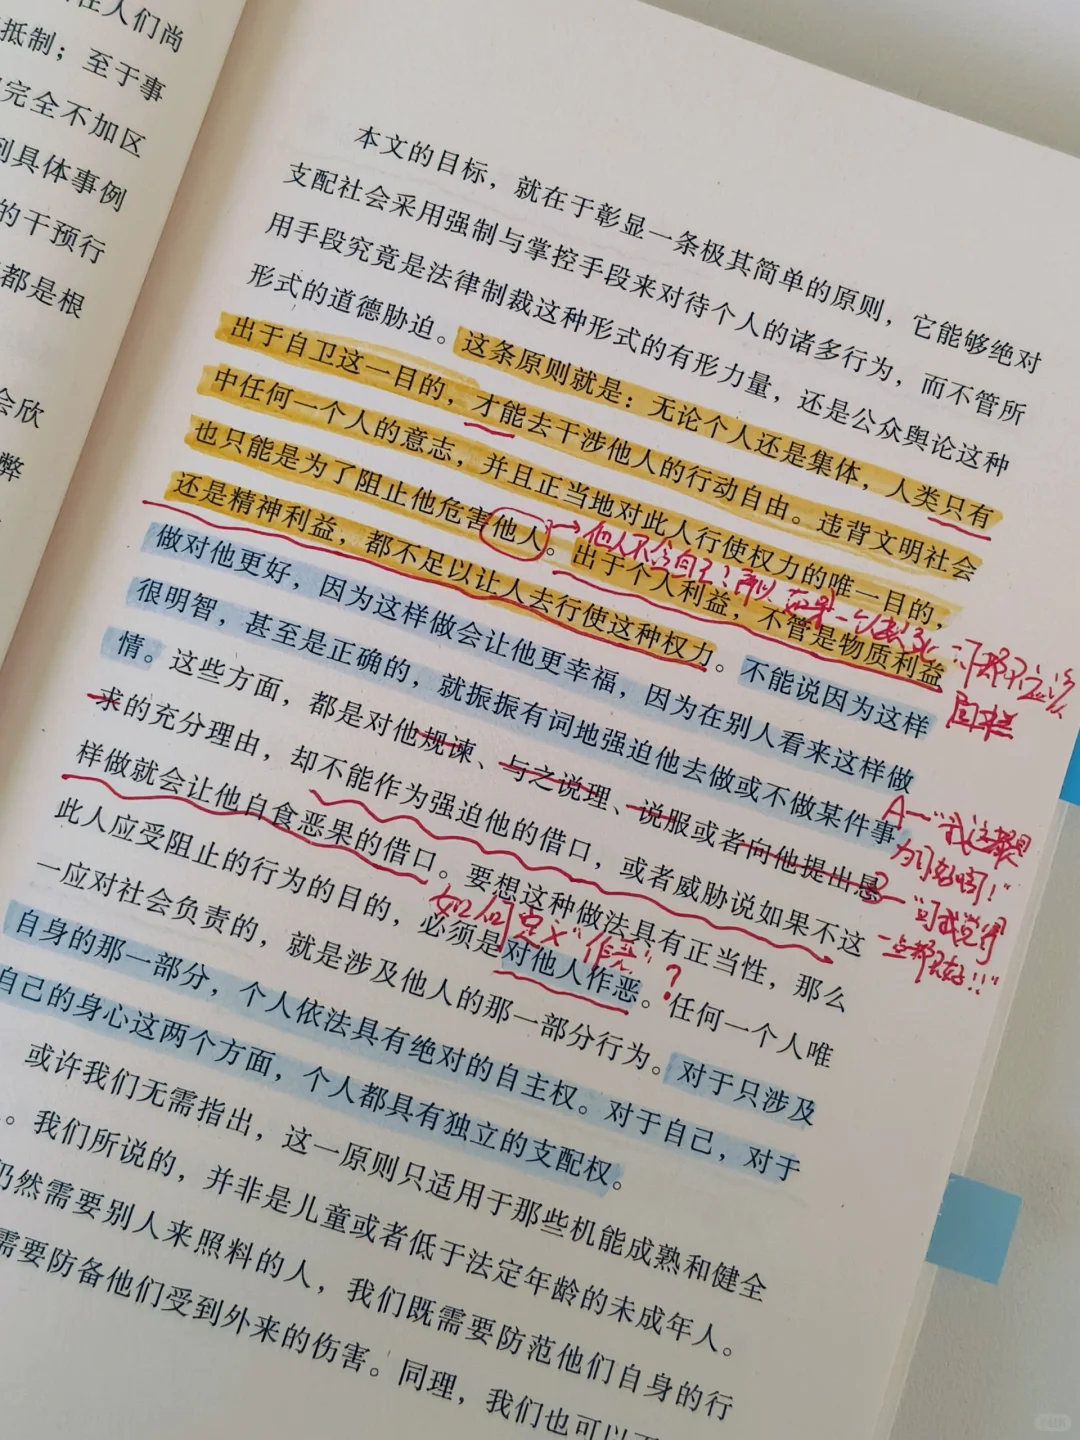 在人们尚
抵制；至于事
完全不加区
到具体事例
的干预行
都是根
会欣
弊
本文的目标，就在于彰显一条极其简单的原则，它能够绝对
支配社会采用强制与掌控手段来对待个人的诸多行为，而不管所
用手段究竟是法律制裁这种形式的有形力量，还是公众舆论这种
形式的道德胁迫。这条原则就是：无论个人还是集体，人类只有
出于自卫这一目的，才能去干涉他人的行动自由。违背文明社会
中任何一个人的意志，并且正当地对此人行使权力的唯一目的，
也只能是为了阻止他危害他人。出于个人利益，不管是物质利益
他人不含自己？所以如果一个人
还是精神利益，都不足以让人去行使这种权力。不能说因为这样
做对他更好，因为这样做会让他更幸福，因为在别人看来这样做
很明智，甚至是正确的，就振振有词地强迫他去做或不做某件事
情。这些方面，都是对他规谏、与之说理、说服或者向他提出恳
求的充分理由，却不能作为强迫他的借口，或者威胁说如果不这
A—“我这都是
为了你好啊！”
B—“可我觉得
一点都不好！！”
样做就会让他自食恶果的借口。要想这种做法具有正当性，那么
如何定义“作恶”？
此人应受阻止的行为的目的，必须是对他人作恶。任何一个人唯
一应对社会负责的，就是涉及他人的那一部分行为。对于只涉及
自身的那一部分，个人依法具有绝对的自主权。对于自己，对于
自己的身心这两个方面，个人都具有独立的支配权。
或许我们无需指出，这一原则只适用于那些机能成熟和健全
。我们所说的，并非是儿童或者低于法定年龄的未成年人。
仍然需要别人来照料的人，我们既需要防范他们自身的行
需要防备他们受到外来的伤害。同理，我们也可以